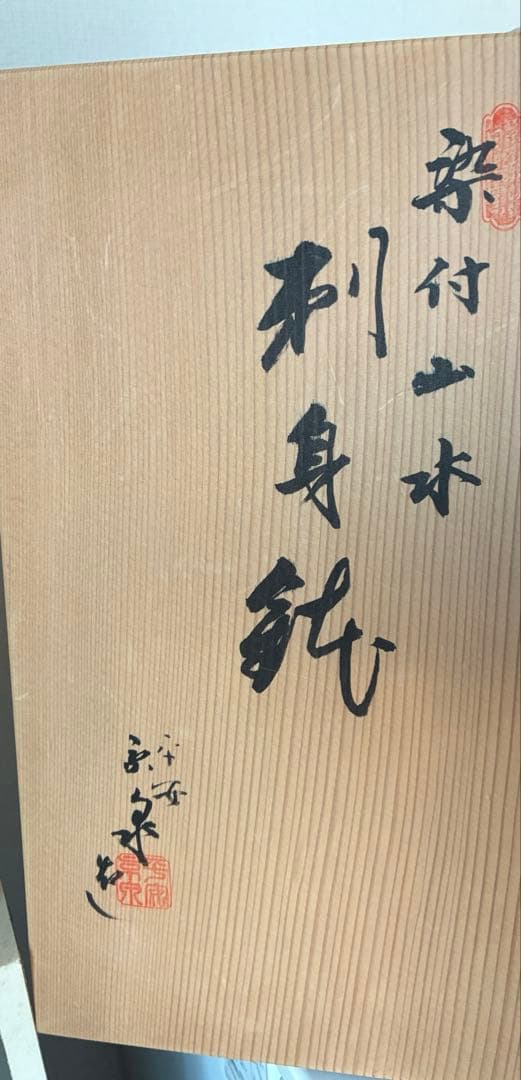 染付山水
刺身鉢
平安
泉造